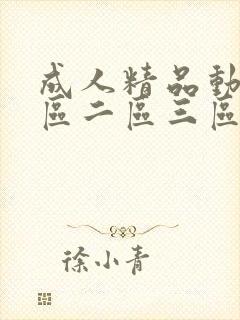 成人精品動
區二區三區
徐小青